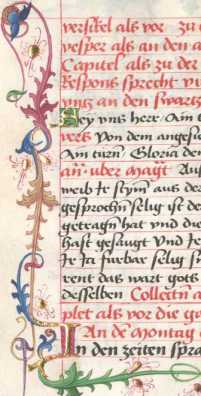 versikel als vor zu
vesper als an den a
Capitel als zu der
Respons sprecht vn
vnd an den swartz
Bey vns here Am t
vers Von dem angesi
Am turn Gloria den
an uber magt Aus
weib te stym aus der
gesprochn selig ist de
getragn hat vnd die
hast gesaugt Vnd te
te ia furbar selig s
rent das wart gots
desselben Collectn a
plet als vor die ga
An de montag
In den zeiten spra